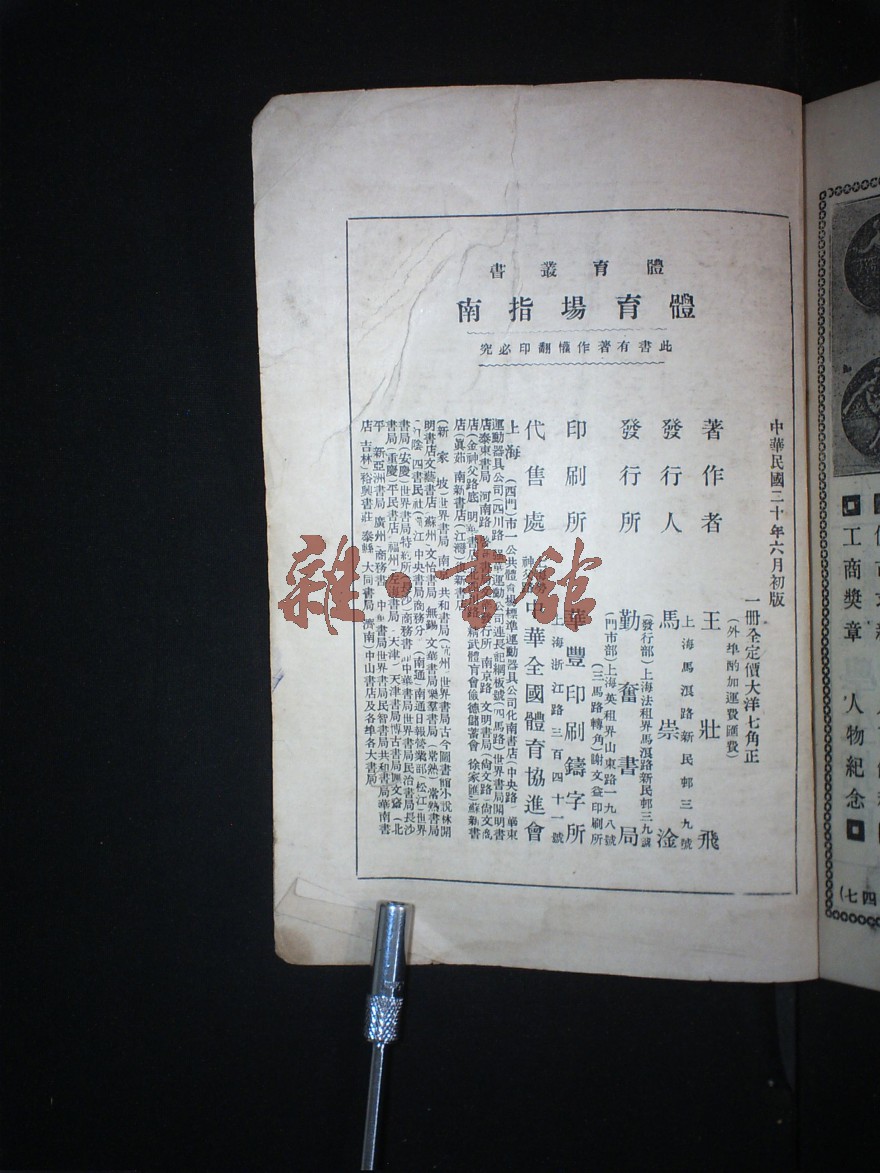 體育叢書
體育場指南
此書有著作權翻印必究
中華民國二十年六月初版
一冊全定價大洋七角正
(外埠酌加運費匯費)
著作者 王壯飛
上海馬浪路新民邨三九號
發行人 馬崇淦
(發行部)上海法租界馬浪路新民邨三九號
發行所 勤奮書局
(門市部)上海英租界山東路一九八號
(三馬路轉角)謝文益印刷所
印刷所 華豐印刷鑄字所
上海浙江路三百四十一號
代售處 中華全國體育協進會
上海 (西門)市一公共體育場標準運動器具公司化南書店(中央路)華東
運動器具公司(四川路)運動公司連長記網板號(四馬路)世界書局開明書
店泰東書局 河南路 發行所 南京路 文明書局(尙文路)尙文
店(金神父路底 明 書店 精武體育會儉德儲蓄會 徐家匯 蘇新書
店(眞茹 南新書店(江灣) 新書店
(新家坡)世界書局 南京 共和書局(杭州)世界書局古今圖書館小說林開
明書店文藝書店(蘇州)文怡書局 無錫 文華書局樂羣書局(常熟)常熟書局
陰 四書民社 江 中央書局商務分 (南通)南通日報營業部(松江)世界
書局(安慶)世界書局特約所 商務書 中華書局世界書局民治書局長沙
書局(重慶)平民書店 福州 左 書局 天津 天津書局博古書局匯文齋(北
平 新亞洲書局 廣州 商務書 中華書局世界書局民智書局共和書局華南書
店 吉林)裕興書莊 泰縣 大同書局 濟南)中山書店及各埠各大書局
雜·書館
工商獎章 人物紀念
七四